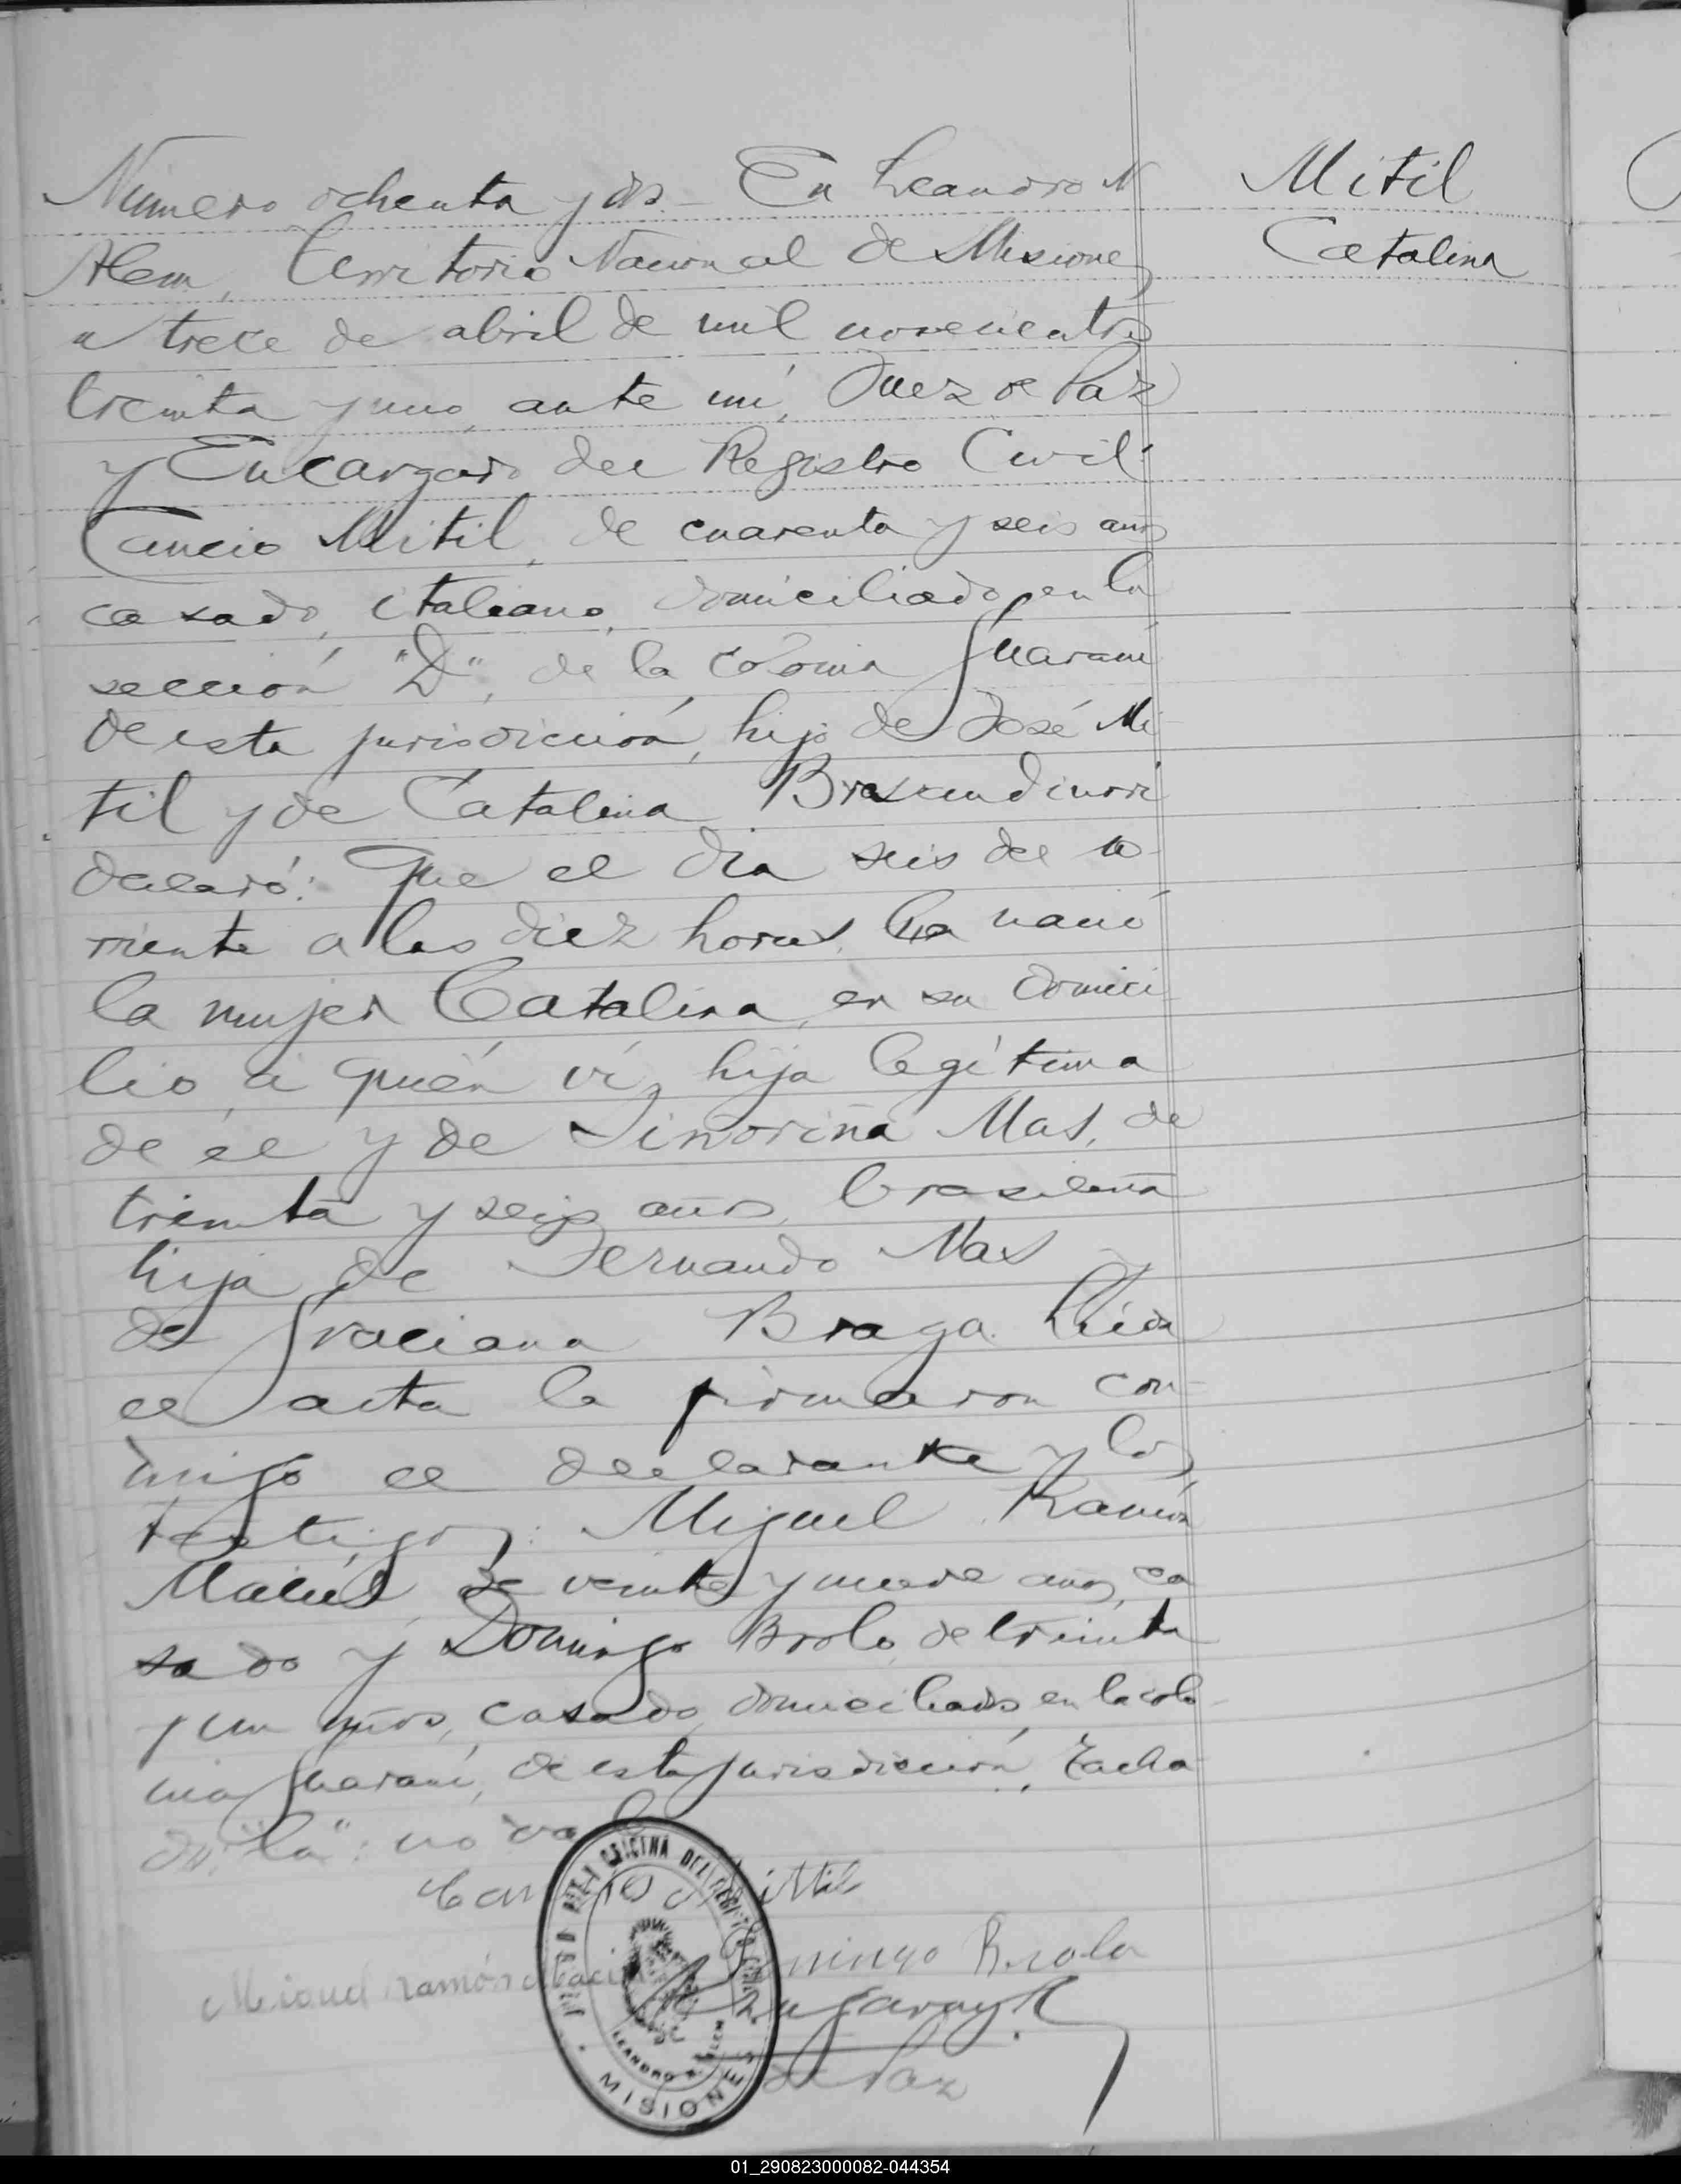 Número ochenta y dos.- En Leandro N
Mitil
Alem, Territorio Nacional de Misiones
Catalina
a trece de abril de mil novecientos
treinta y uno, ante mí, Juez de Paz
y Encargado del Registro Civil:
Cancio Mitil, de cuarenta y seis años
casado, italiano, domiciliado en la
sección "D", de la colonia Guaraní
de esta jurisdicción, hijo de José Mi-
til y de Catalina
declaró: Que el día seis del co-
rriente a las diez horas la nació
la mujer Catalina, en su domici-
lio, a quién ví, hija legítima
de él y de Mas, de
treinta y seis años, brasileña
hija de Fernando Mas y
de Graciana Braga. Leída
el acta la firmaron con-
migo el declarante y los
testigos: Miguel Ramón
Maciel, de veinte y nueve años, ca
sado y Domingo Brolo, de treinta
y un años, casado, domiciliados en la colo-
nia Guaraní, de esta jurisdicción. Tacha-
do: "la": no vale
Mitil
Domingo Brola
Miguel Ramón Maci
de Paz
OFICINA DEL REGISTRO CIVIL
LEANDRO N. ALEM
MISIONES
01_290823000082-044354